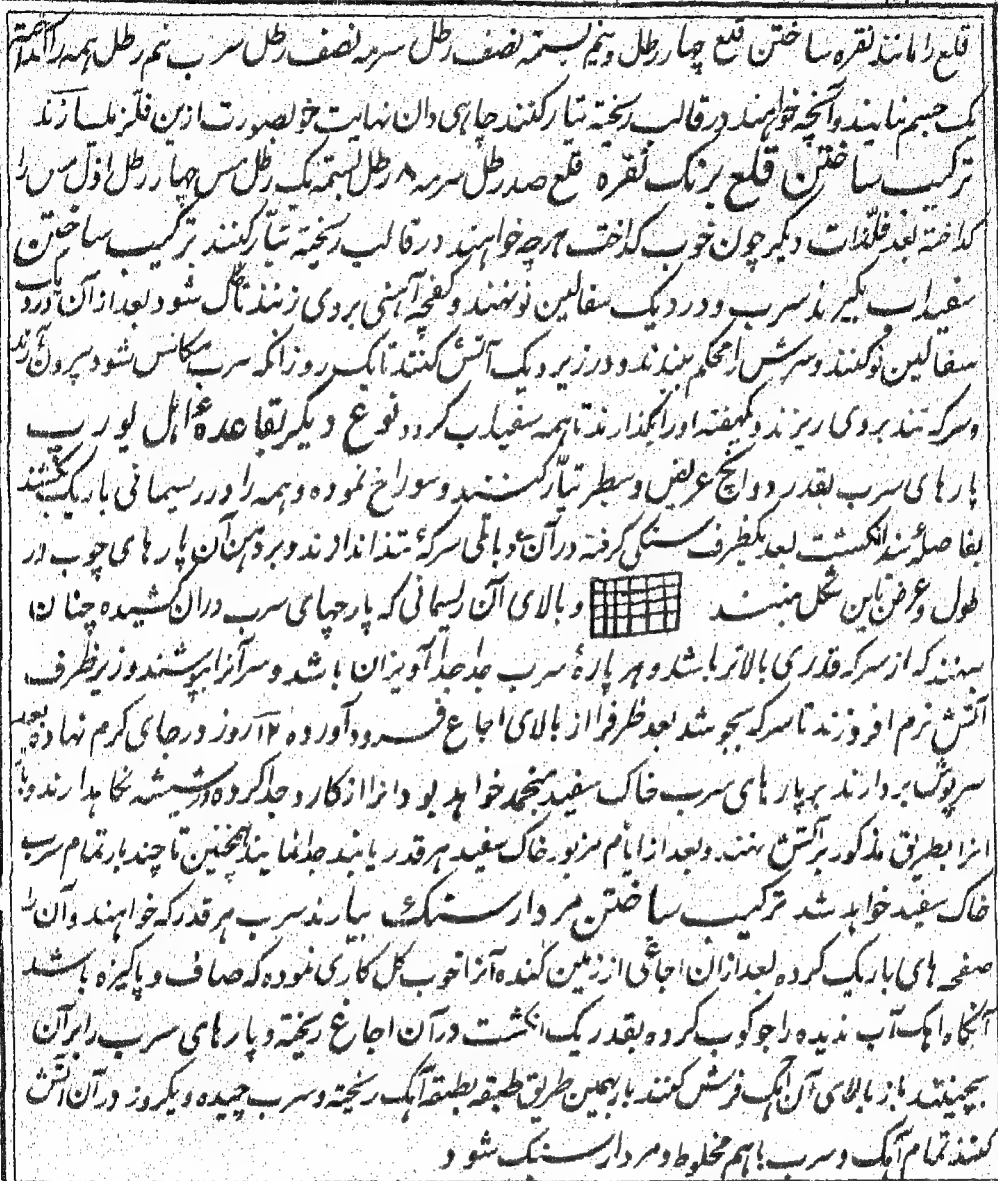 قلع را مانند نقره ساختن قلع چهار رطل و نیم بستمه نصف رطل سرمه نصف رطل سرب نیم رطل همه را انداخته
یک جسم نمایند و آنچه خواهند در قالب ریخته تیار کنند چاهی دان نهایت خوبصورت ازین فلز میسازند
ترکیب ساختن قلع برنگ نقره قلع صد رطل سرمه ۸ رطل بستمه یک رطل مس چهار رطل اول مس را
کداخته بعد فلزات دیگر چون خوب کداخت هرچه خواهند در قالب ریخته تیار کنند ترکیب ساختن
سفیداب بگیرند سرب و در دیک سفالین نو نهند و کفچه آهنی بروی زنند تا خاک شود بعد از آن در دیک
سفالین نو کنند و سرش را محکم ببندند و در زیر دیک آتش کنند تا یک روز آنکه سرب مکلس شود بیرون آرند
و سرکه تند بروی ریزند و یکهفته او را بگذارند تا همه سفیداب گردد نوع دیگر بقاعده اهل یورپ
پارهای سرب بقدر دو انچ عریض و سطبر تیار کنند و سوراخ نموده و همه را در ریسمانی باریک بکشند
بفاصلهٔ سه انکشت بعد یکظرف سنکی گرفته در آن دو باتلی سرکهٔ تند اندازند و بر دهن آن پارهای چوب در
طول و عرض باین شکل ببندند و بالای آن ریسمانی که پارچهای سرب دران کشیده چنان
ببندند که از سرکه قدری بالاتر باشد و هر پارهٔ سرب جدا جدا آویزان باشد و سر آنرا بپوشند و زیر ظرف
آتش نرم افروزند تا سرکه بجوشد بعد ظرف را از بالای اجاغ فرود آورده ۱۲ روز در جای کرم نهاده بعد
سرپوش بردارند بر پارهای سرب خاک سفید منجمد خواهد بود انرا از کارد جدا کرده در شیشه نکاهدارند و باز
انرا بطریق مذکور بر آتش نهند و بعد از ایام مزبور خاک سفید هر قدر یابند جدا نمایند همچنین تا چند بار تمام سرب
خاک سفید خواهد شد ترکیب ساختن مردارسنک بیارند سرب هر قدر که خواهند و آن را
صفحه های باریک کرده بعد ازان اجاغی از زمین کنده آنرا خوب کل کاری نموده که صاف و پاکیزه باشد
آنگاه اهک آب ندیده را جوکوب کرده بقدر یک انکشت در آن اجاغ ریخته و پارهای سرب را بر آن
بچینند باز بالای آن آهک فرش کنند باز بهمین طریق طبقه بطبقه آهک ریخته و سرب چیده و یکروز در آن آتش
کنند تمام آهک و سرب باهم مخلوط و مردارسنک شود